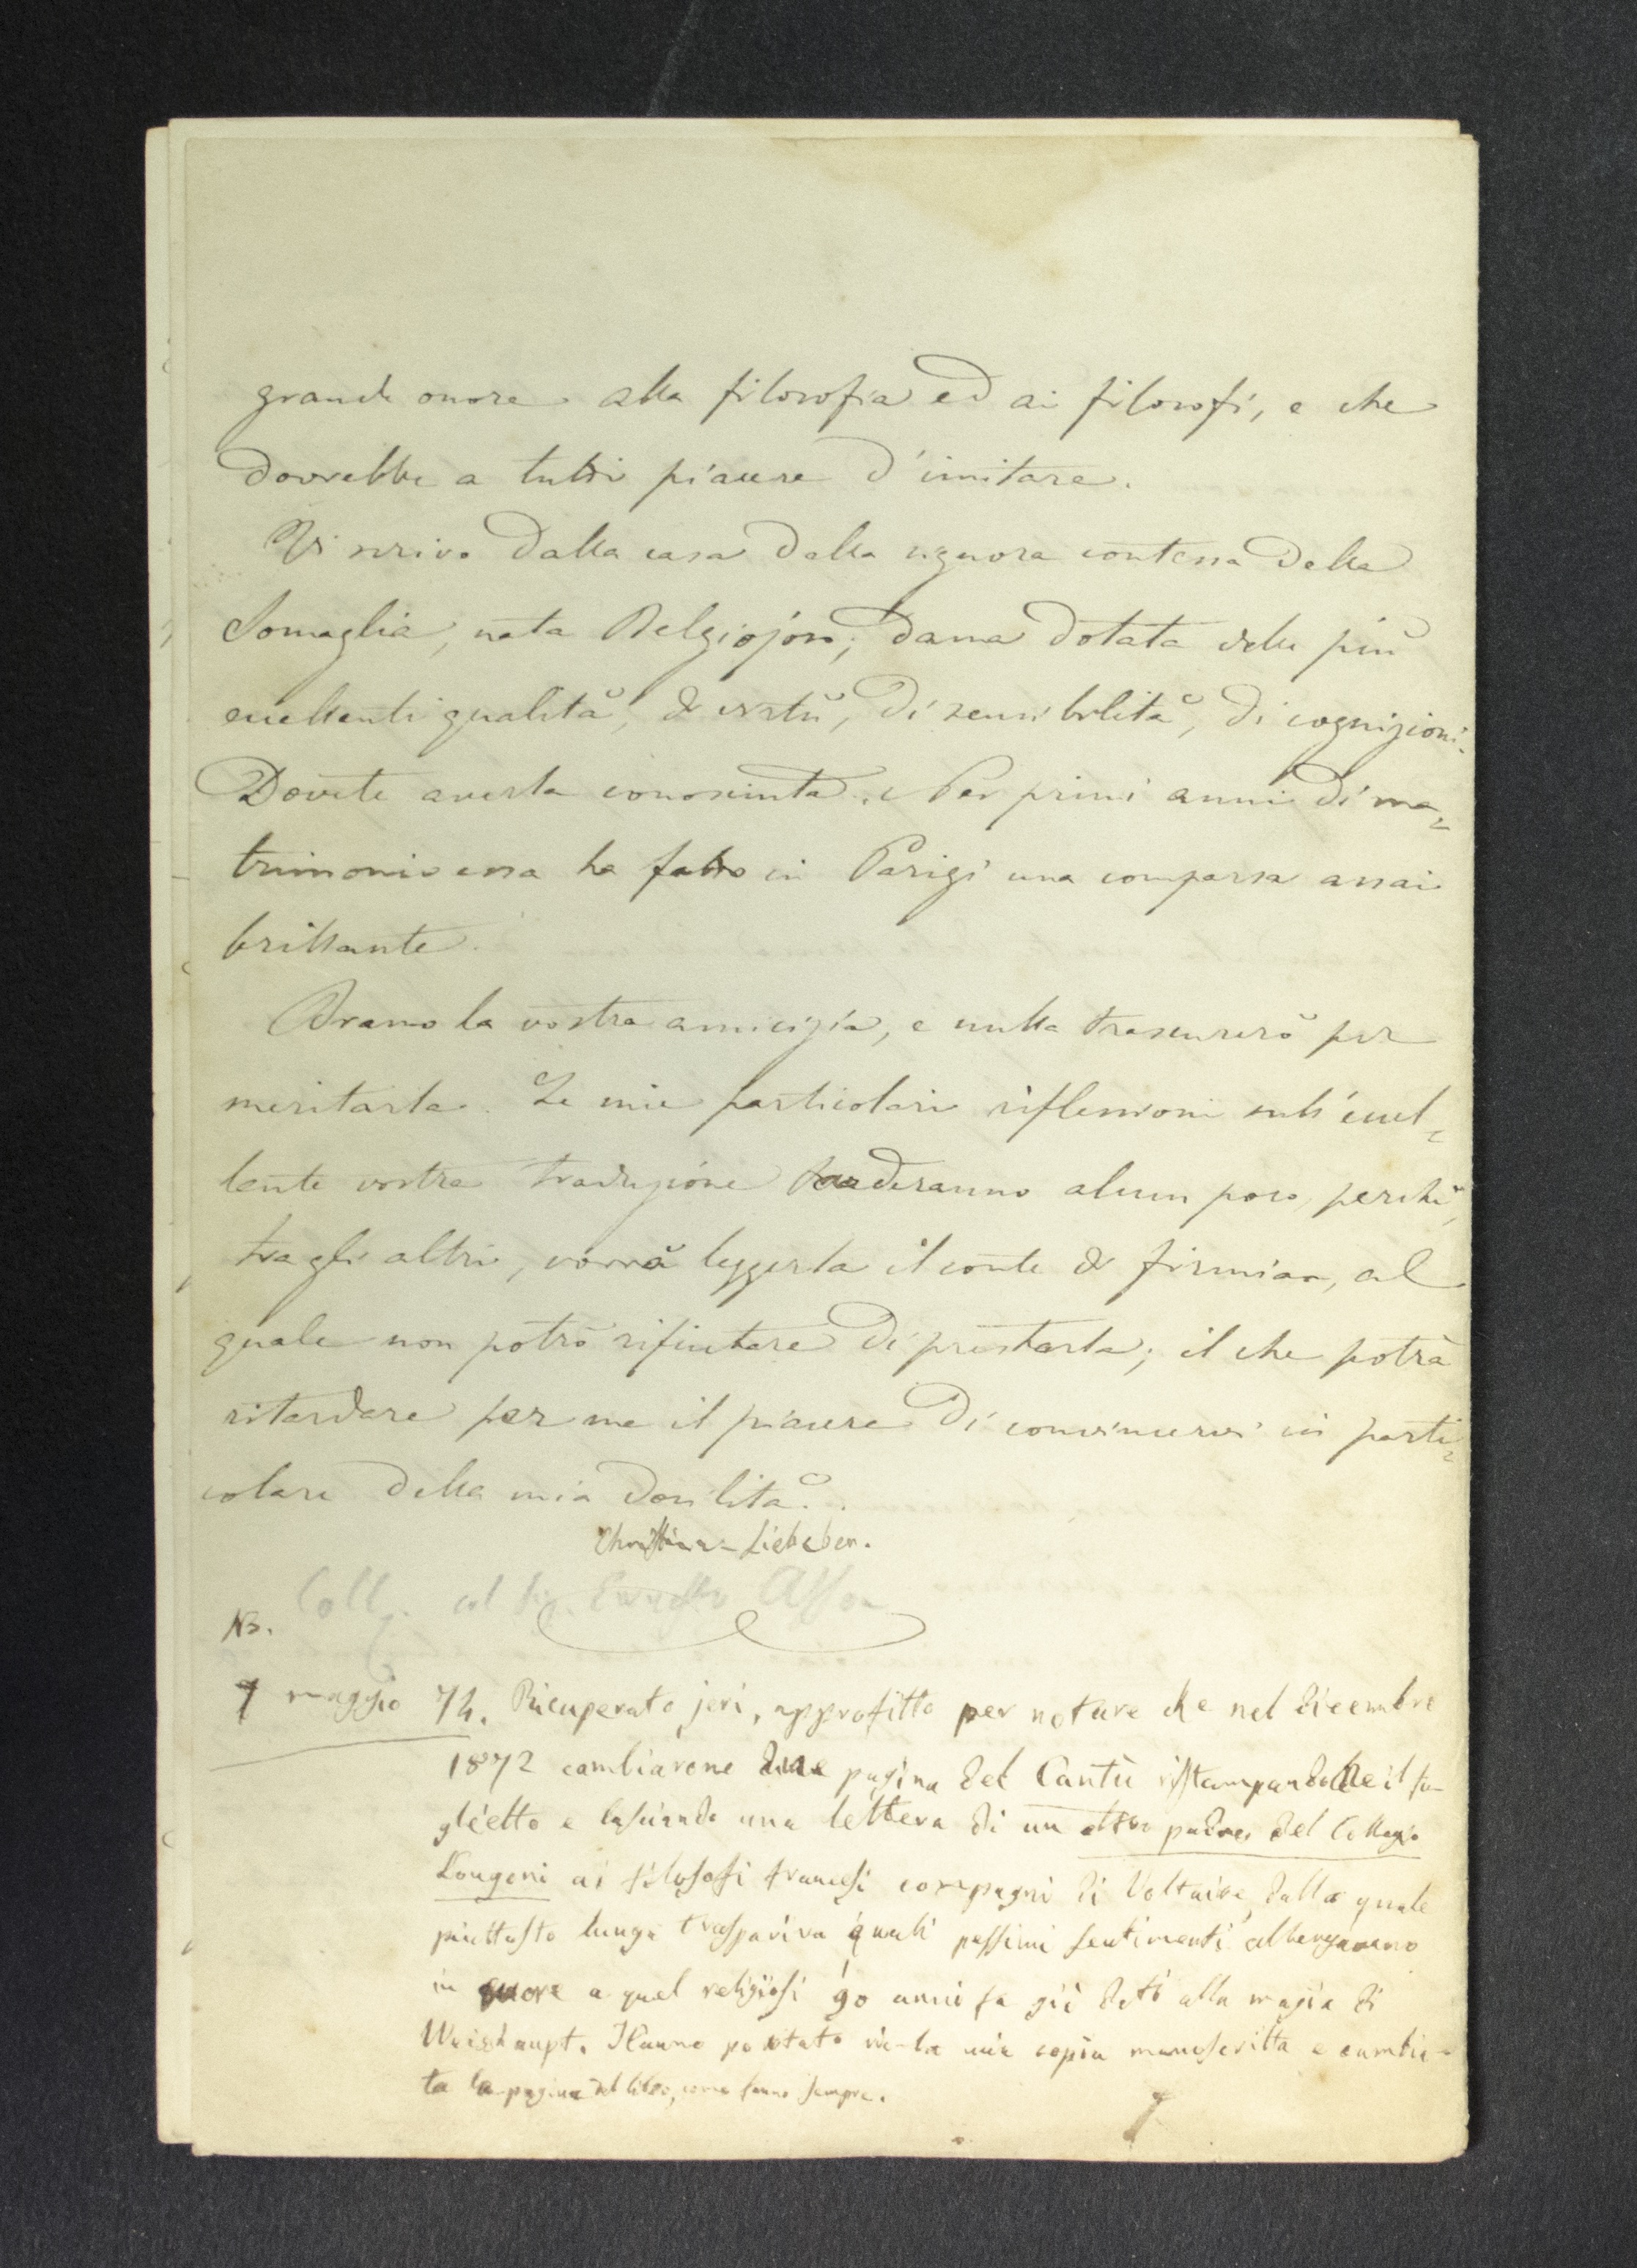 grande onore alla filosofia ed ai filosofi, e che
dovrebbe a tutti piacere d'imitare.
Vi scrivo dalla casa della signora contessa della
Somaglia, nata Belgiojoso; dama dotata delle più
eccellenti qualità, di virtù, di sensibilità, di cognizioni.
Dovete averla conosciuta. Nei primi anni di ma=
trimonio essa ha fatto in Parigi una comparsa assai
brillante.
Bramo la vostra amicizia, e nulla trascurerò per
meritarla. Le mie particolari riflessioni sull'eccel=
lente vostra traduzione tarderanno alcun poco, perchè,
tra gli altri, vorrà leggerla il conte di Firmian, al
quale non potrò rifiutare di prestarla; il che potrà
ritardare per me il piacere di convincervi in parti=
colare della mia docilità.
Liebeben.
Coll. col
NB.
7 maggio 74. Ricuperato jeri, approfitto per notare che nel dicembre
1872 cambiarono due pagina del Cantù ristampandone il fo-
glietto e lasciando una lettera di un altro padre del Collegio
Longoni ai filosofi francesi compagni di Voltaire, dalla quale
piuttosto lunga traspariva quali pessimi sentimenti albergavano
in cuore a quei religiosi 90 anni fa già dati alla magia di
Weishaupt. Hanno portato via la mia copia manoscritta e cambia-
ta la pagina del libro, come fanno sempre.